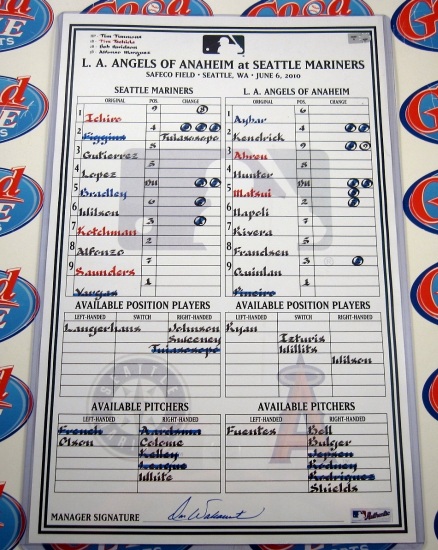 Tim Timmons
Tim Tschida
Bob Davidson
Alfonso Marquez
L. A. ANGELS OF ANAHEIM at SEATTLE MARINERS
SAFECO FIELD • SEATTLE, WA • JUNE 6, 2010
SEATTLE MARINERS L. A. ANGELS OF ANAHEIM
ORIGINAL POS. CHANGE ORIGINAL POS. CHANGE
1 Ichiro 9 1 Aybar 6
2 Figgins 4 Tuiasosopo 2 Kendrick 4
3 Gutierrez 8 3 Abreu 9
4 Lopez 5 4 Hunter 8
5 Bradley DH 5 Matsui DH
6 Wilson 6 6 Napoli 2
7 Kotchman 3 7 Rivera 7
8 Alfonzo 2 8 Frandsen 5
9 Saunders 7 9 Quinlan 3
Vargas 1 Pineiro 1
AVAILABLE POSITION PLAYERS AVAILABLE POSITION PLAYERS
LEFT-HANDED SWITCH RIGHT-HANDED LEFT-HANDED SWITCH RIGHT-HANDED
Langerhans Johnson Ryan
Sweeney Izturis
Tuiasosopo Willits
Wilson
AVAILABLE PITCHERS AVAILABLE PITCHERS
LEFT-HANDED RIGHT-HANDED LEFT-HANDED RIGHT-HANDED
French Aardsma Fuentes Bell
Olson Colome Bulger
Kelley Jepsen
League Rodney
White Rodriguez
Shields
MANAGER SIGNATURE Don Wakamatsu